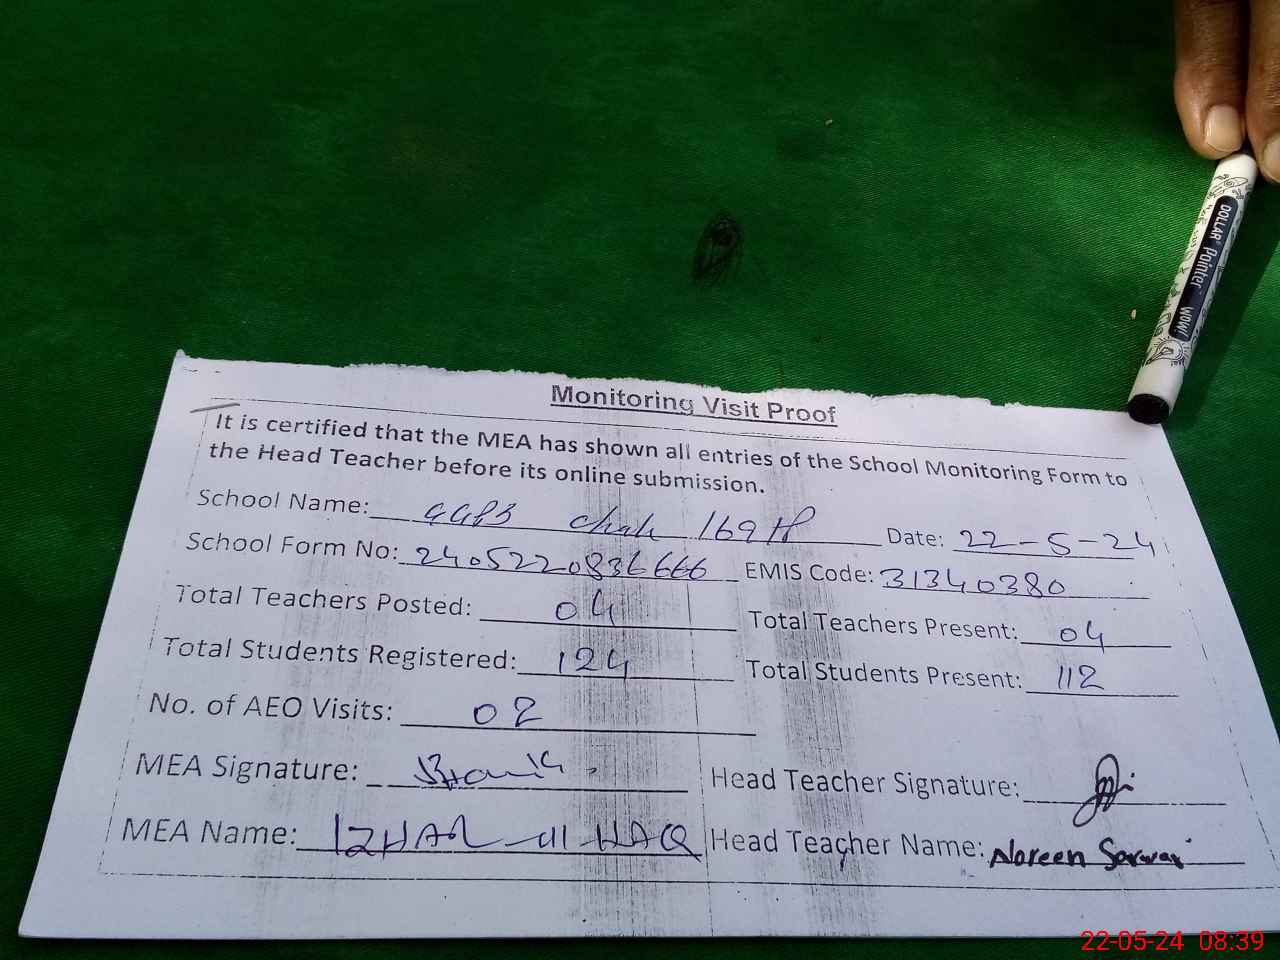 DOLLAR Pointer WOW!
Monitoring Visit Proof
It is certified that the MEA has shown all entries of the School Monitoring Form to
the Head Teacher before its online submission.
School Name: GGPS Chak 169 P Date: 22-5-24
School Form No: 2405220836666 EMIS Code: 31340380
Total Teachers Posted: 04 Total Teachers Present: 04
Total Students Registered: 124 Total Students Present: 112
No. of AEO Visits: 02
MEA Signature: Head Teacher Signature:
MEA Name: IZHAR-Ul-HAQ Head Teacher Name: Noreen Sarwar
22-05-24 08:39